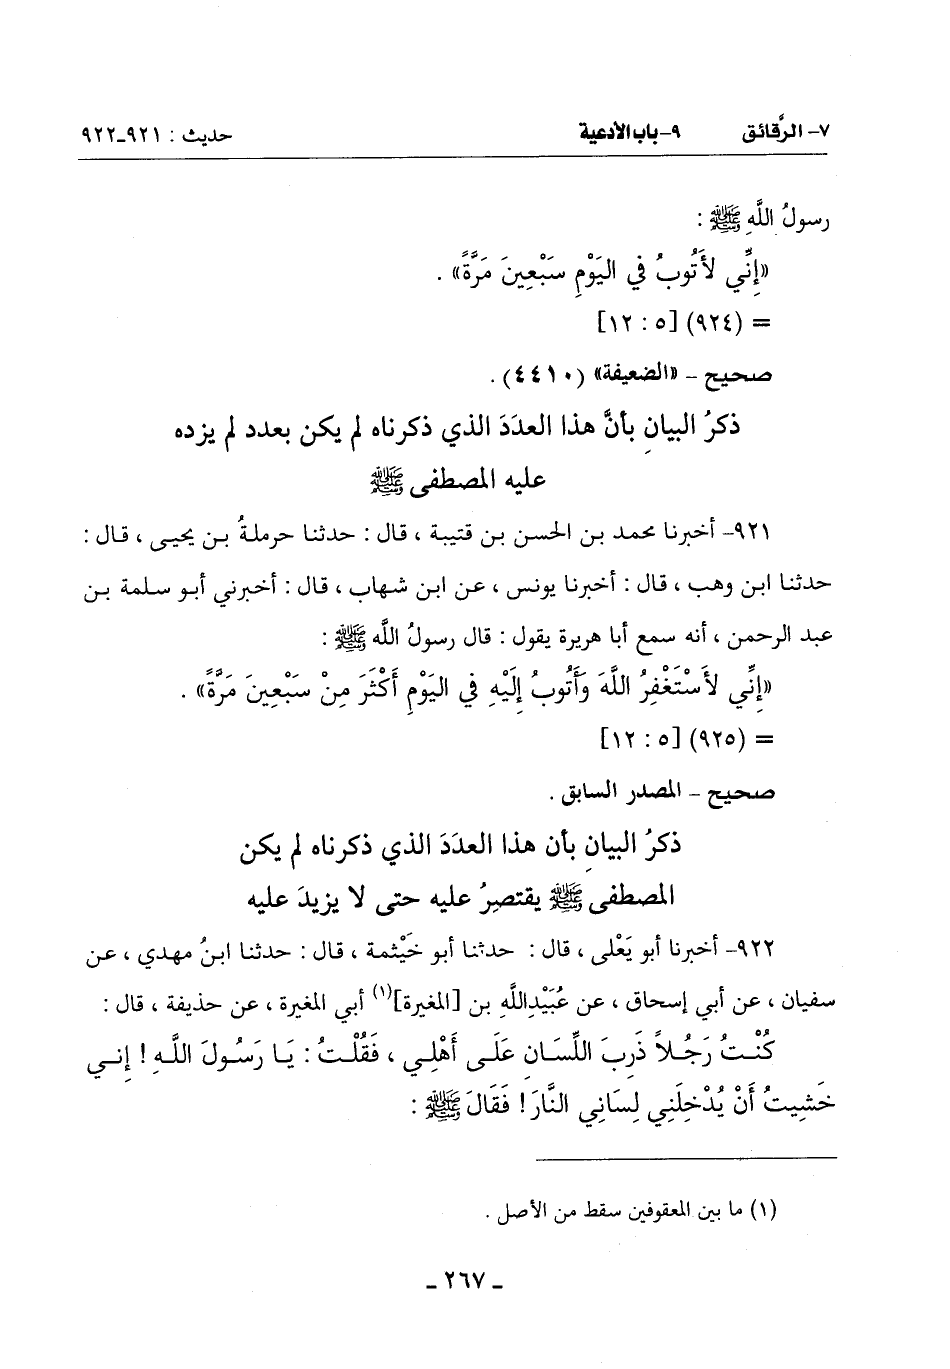 ٧- الرَّقائق ٩- باب الأدعية حديث : ٩٢١-٩٢٢
رسولُ اللَّهِ ﷺ :
«إِنِّي لأَتُوبُ في اليَوْمِ سَبْعِينَ مَرَّةً» .
= (٩٢٤) [٥ : ١٢]
صحيح - «الضعيفة» (٤٤١٠) .
ذكرُ البيانِ بأنَّ هذا العدَدَ الذي ذكرناه لم يكن بعدد لم يزده
عليه المصطفى ﷺ
٩٢١- أخبرنا محمد بن الحسن بن قتيبة ، قال : حدثنا حرملةُ بن يحيى ، قال :
حدثنا ابن وهب ، قال : أخبرنا يونس ، عن ابن شهاب ، قال : أخبرني أبو سلمة بن
عبد الرحمن ، أنه سمع أبا هريرة يقول : قال رسولُ اللَّه ﷺ :
«إِنِّي لأَسْتَغْفِرُ اللَّهَ وَأَتُوبُ إِلَيْهِ في اليَوْمِ أَكْثَرَ مِنْ سَبْعِينَ مَرَّةً» .
= (٩٢٥) [٥ : ١٢]
صحيح - المصدر السابق .
ذكرُ البيانِ بأن هذا العدَدَ الذي ذكرناه لم يكن
المصطفى ﷺ يقتصِرُ عليه حتى لا يزيدَ عليه
٩٢٢- أخبرنا أبو يَعْلى ، قال : حدثنا أبو خَيْثمة ، قال : حدثنا ابنُ مهدي ، عن
سفيان ، عن أبي إسحاق ، عن عُبَيْدِاللَّهِ بن [المغيرة](١) أبي المغيرة ، عن حذيفة ، قال :
كُنْتُ رَجُلاً ذَرِبَ اللِّسَانِ عَلَى أَهْلِي ، فَقُلْتُ : يَا رَسُولَ اللَّهِ ! إِنِّي
خَشِيتُ أَنْ يُدْخِلَنِي لِسَانِي النَّارَ ! فَقَالَ ﷺ :
(١) ما بين المعقوفين سقط من الأصل .
- ٢٦٧ -